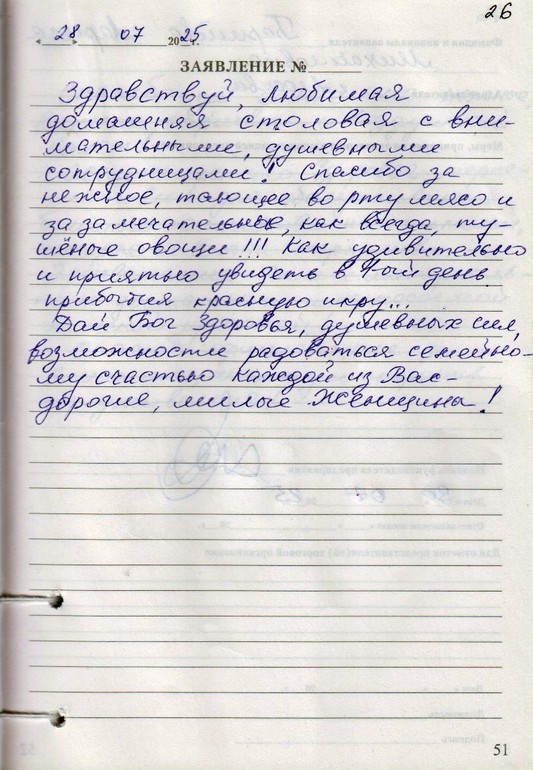 26
« 28 » 07 2025 г.
ЗАЯВЛЕНИЕ №
Здравствуй, любимая
домашняя столовая с вни-
мательными, душевными
сотрудницами! Спасибо за
нежное, тающее во рту мясо и
за замечательные, как всегда, ту-
шёные овощи!!! Как удивительно
и приятно увидеть в 4-ый день
прибытия красную икру...
Дай Бог Здоровья, душевных сил,
возможности радоваться семейно-
му счастью каждой из Вас-
дорогие, милые Женщины!
51